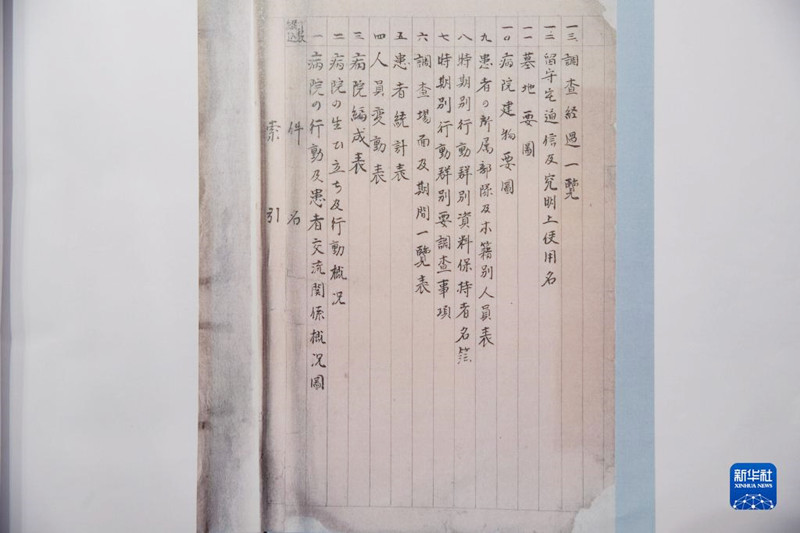 件名
索引
一 病院の行動及患者交流関係概況圖
二 病院の生ひ立ち及行動概况
三 病院編成表
四 人員変動表
五 患者統計表
六 調査場面及期間一覽表
七 時期別行動群別要調査事項
八 時期別行動群別資料保持者名簿
九 患者の所属部隊及本籍別人員表
一〇 病院建物要圖
一一 墓地要圖
一二 留守宅通信及究明上使用名
一三 調査経過一覽
新华社
XINHUA NEWS